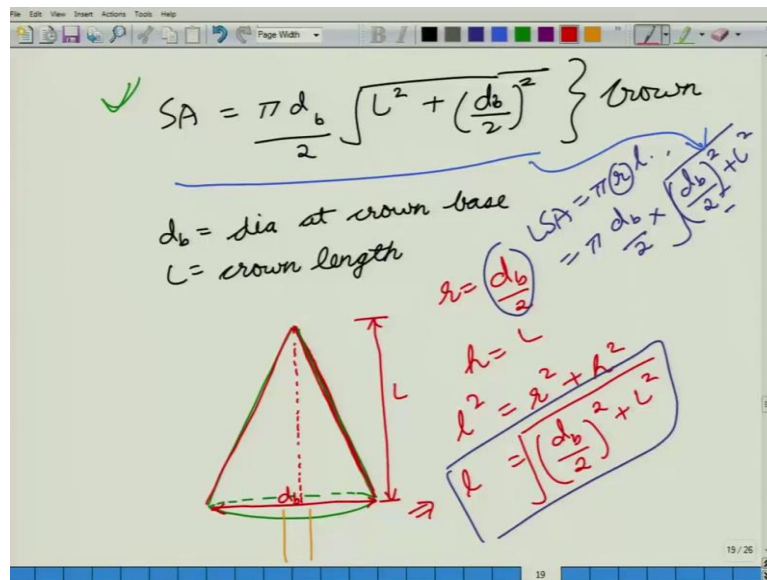 File Edit View Insert Actions Tools Help
Page Width
B I
SA = π d_b / 2 √(L² + (d_b/2)²) } crown
d_b = dia at crown base
L = crown length
LSA = π r l..
= π d_b/2 × √((d_b/2)² + L²)
r = d_b/2
h = L
l² = r² + h²
⇒ l = √((d_b/2)² + L²)
L
d_b
19 / 26
19